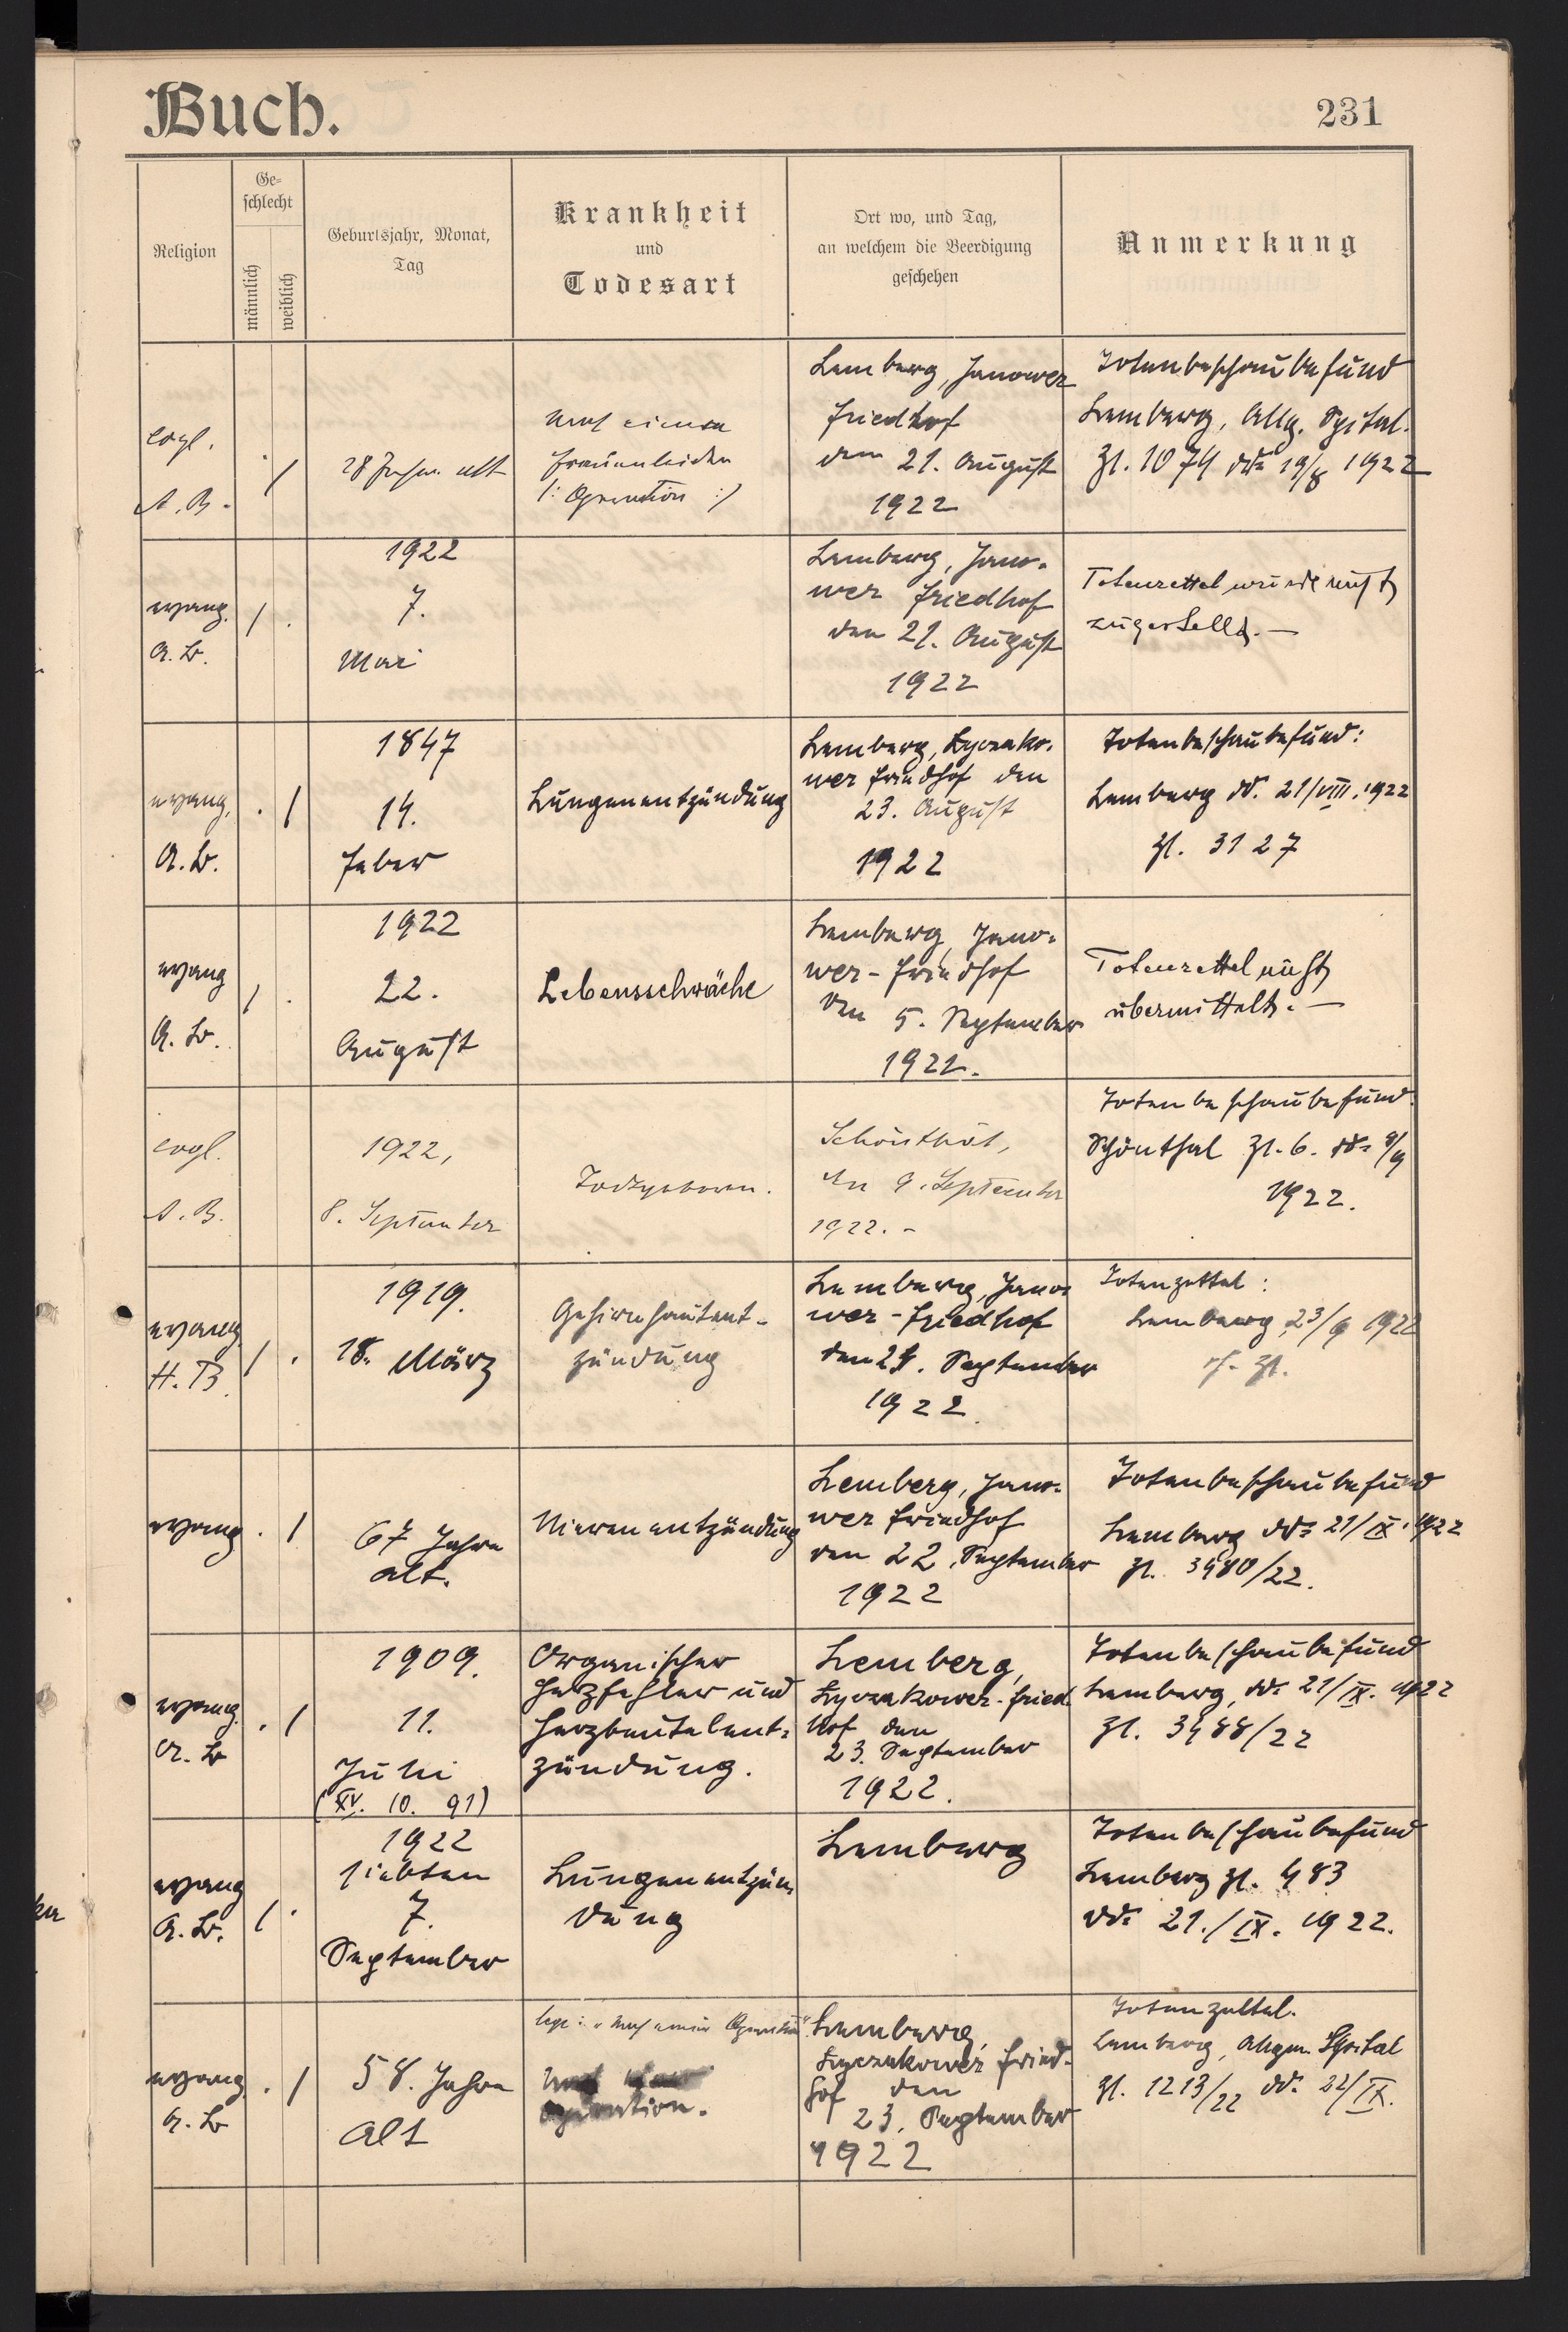 Buch.
231
Religion
Ge-
schlecht
männlich
weiblich
Geburtsjahr, Monat,
Tag
Krankheit
und
Todesart
Ort wo, und Tag,
an welchem die Beerdigung
geschehen
Anmerkung
evgl.
A. B.
. /
28 Jahre alt
nach einem
Frauenleiden
(: Operation :)
Lemberg, Janower
Friedhof
den 21. August
1922
Totenbeschaubefund
Lemberg, Allg. Spital.
Zl. 1074 dto 19/8 1922
evang.
A. B.
/ .
1922
7.
Mai
Lemberg, Jano-
wer Friedhof
den 21. August
1922
Totenzettel wurde nicht
zugestellt. —
evang.
A. B.
. /
1847
14.
Feber
Lungenentzündung
Lemberg, Lyczako-
wer Friedhof den
23. August
1922
Totenbeschaubefund:
Lemberg dd. 21/VIII. 1922
Zl. 3127
evang
A. B.
/ .
1922
22.
August
Lebensschwäche
Lemberg, Jano-
wer-Friedhof
den 5. September
1922.
Totenzettel nicht
übermittelt. —
evgl.
A. B.
1922,
8. September
Todtgeboren.
Schönthal,
den 9. September
1922. -
Totenbeschaubefund.
Schönthal Zl. 6. dd. 8/9
1922.
evang.
H. B.
/ .
1919.
18. März
Gehirnhautent-
zündung
Lemberg, Jano-
wer-Friedhof
den 24. September
1922.
Totenzettel:
Lemberg, 23/9 1922
Zl.
evang.
. /
67 Jahre
alt.
Nierenentzündung
Lemberg, Jano-
wer Friedhof
den 22. September
1922
Totenbeschaubefund
Lemberg dd. 21/IX. 1922
Zl. 3480/22.
evang.
A. B
. /
1909.
11.
Juli
(XV. 10. 91)
Organischer
Herzfehler und
Herzbeutelent-
zündung.
Lemberg,
Lyczakower-Fried-
hof den
23. September
1922.
Totenbeschaubefund
Lemberg, dd. 21/IX. 1922
Zl. 3488/22
evang
A. B.
/ .
1922
siebten
7.
September
Lungenentzün-
dung
Lemberg
Totenbeschaubefund
Lemberg Zl. 483
dd. 21./IX. 1922.
evang.
A. B
. /
58. Jahre
alt
lege: "nach einer Operation"
Operation.
Lemberg,
Lyczakower Fried-
hof den
23. September
1922
Totenzettel.
Lemberg, Allgm. Spital
Zl. 1213/22 dd. 22/IX.